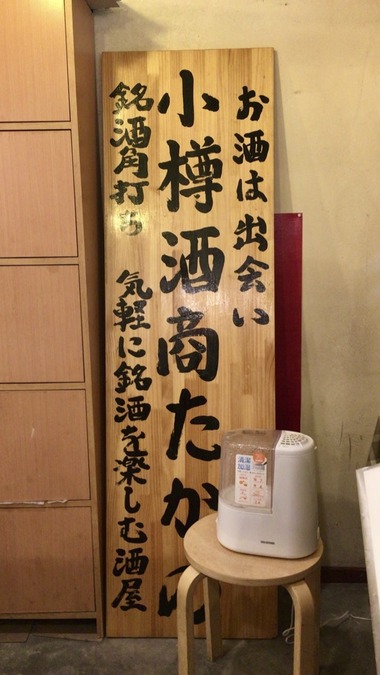 お酒は出会い
小樽酒商たかの
銘酒角打ち 気軽に銘酒を楽しむ酒屋
清潔
加湿